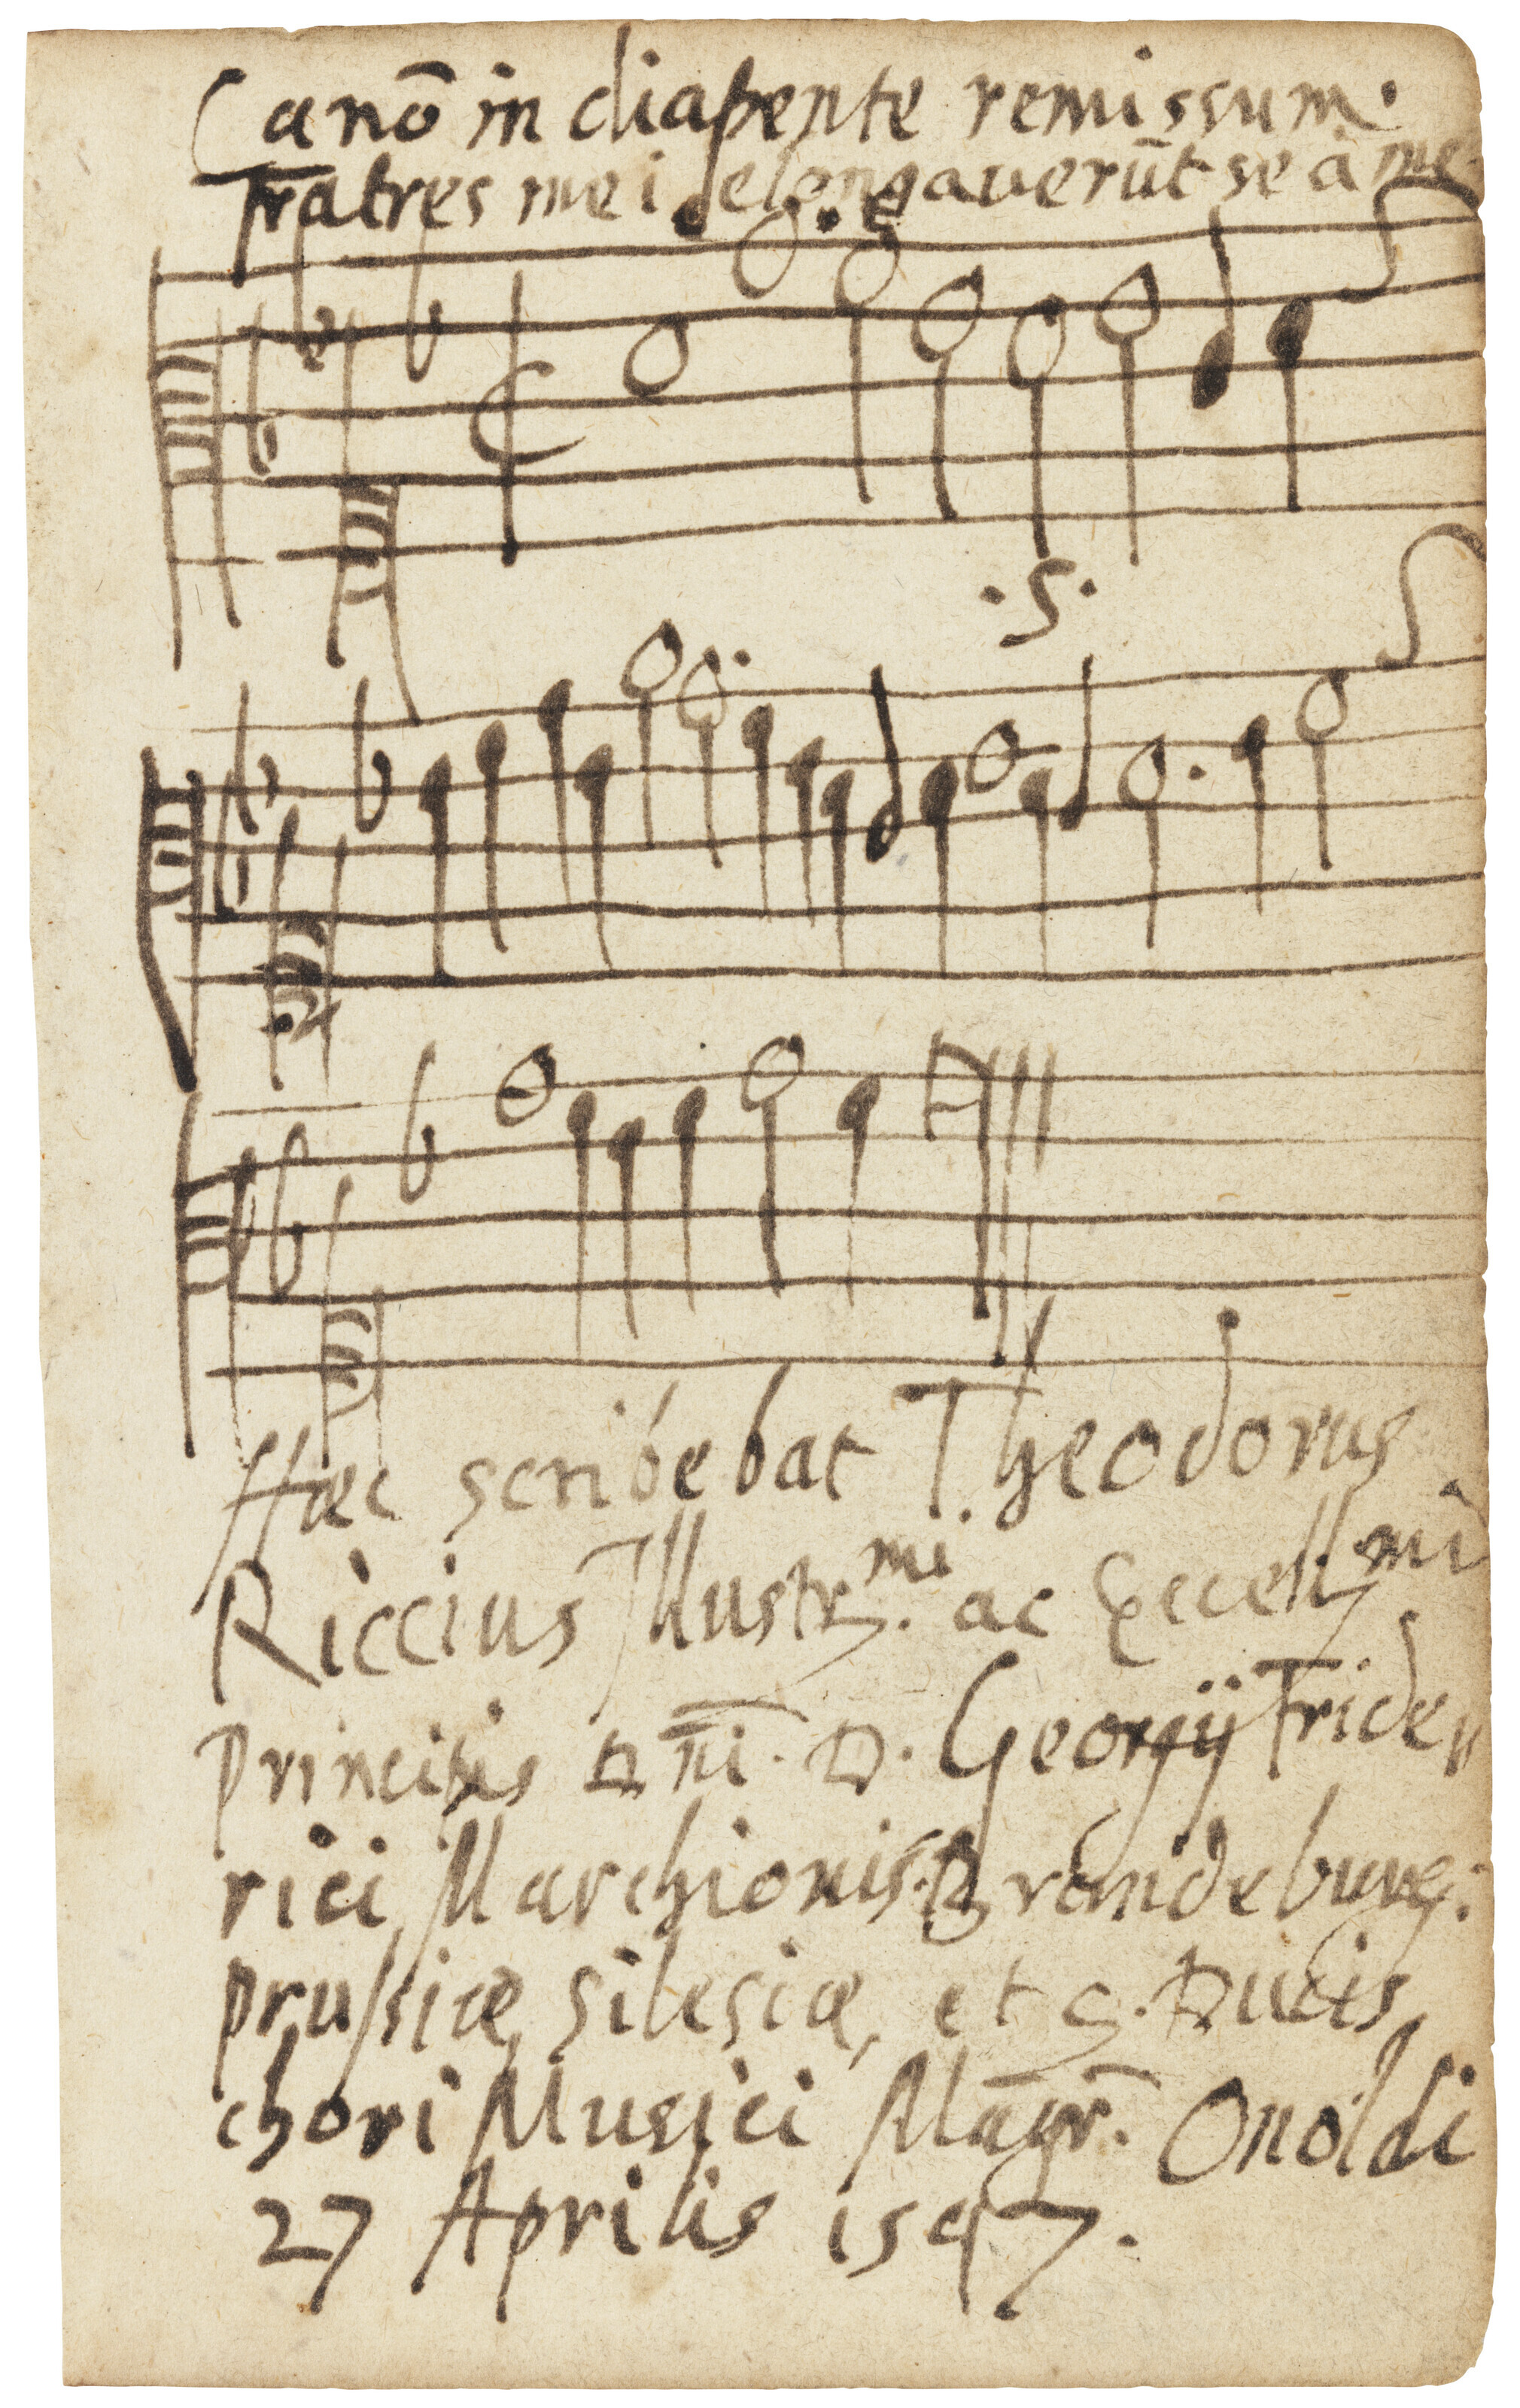 Canō in diapente remissum.
Fratres mei elongaverūt se à me
.S.
Haec scribebat Theodorus
Riccius Illustr.mi ac Excell.mi
Principis Dn̄i. D. Georgij Fride„
rici Marchionis Brandeburg:
prussiae, Silesiae, et c. Ducis
chori Musici Magr̄. Onoldi
27 Aprilis 1597.